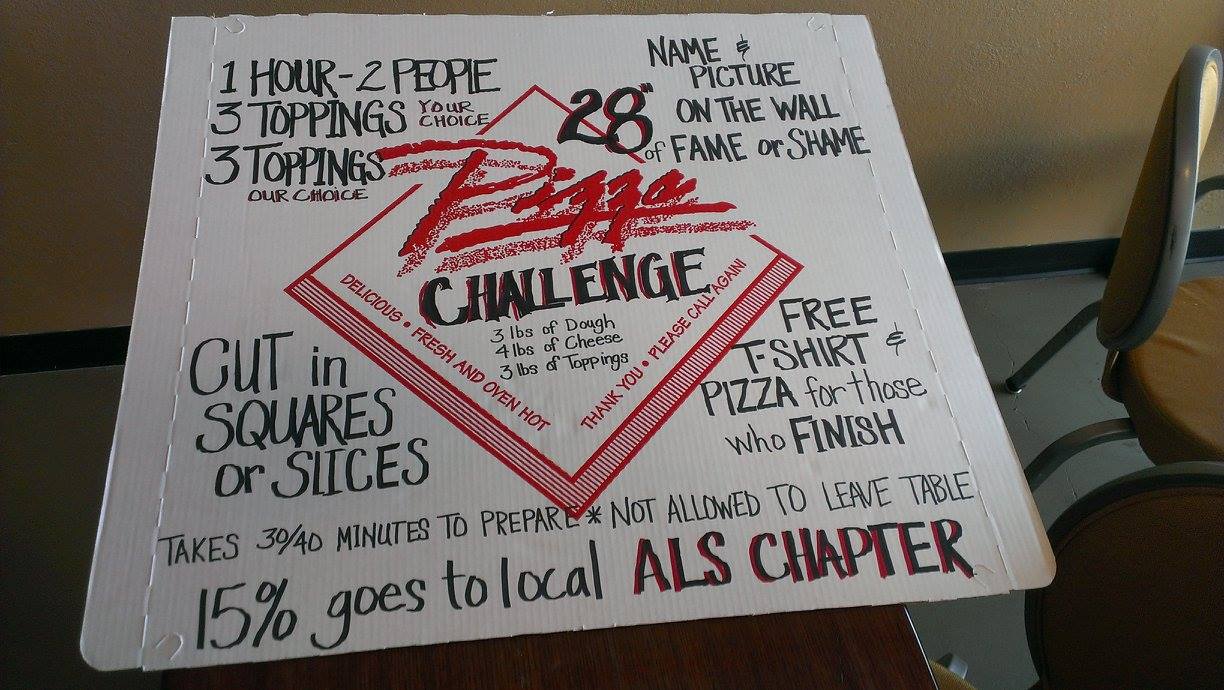 1 HOUR - 2 PEOPLE
3 TOPPINGS YOUR CHOICE
3 TOPPINGS
OUR CHOICE
28"
Pizza
CHALLENGE
3 lbs of Dough
4 lbs of Cheese
3 lbs of Toppings
DELICIOUS • FRESH AND OVEN HOT
THANK YOU • PLEASE CALL AGAIN!
NAME &
PICTURE
ON THE WALL
of FAME or SHAME
CUT in
SQUARES
or SLICES
FREE
T-SHIRT &
PIZZA for those
who FINISH
TAKES 30/40 MINUTES TO PREPARE * NOT ALLOWED TO LEAVE TABLE
15% goes to local ALS CHAPTER